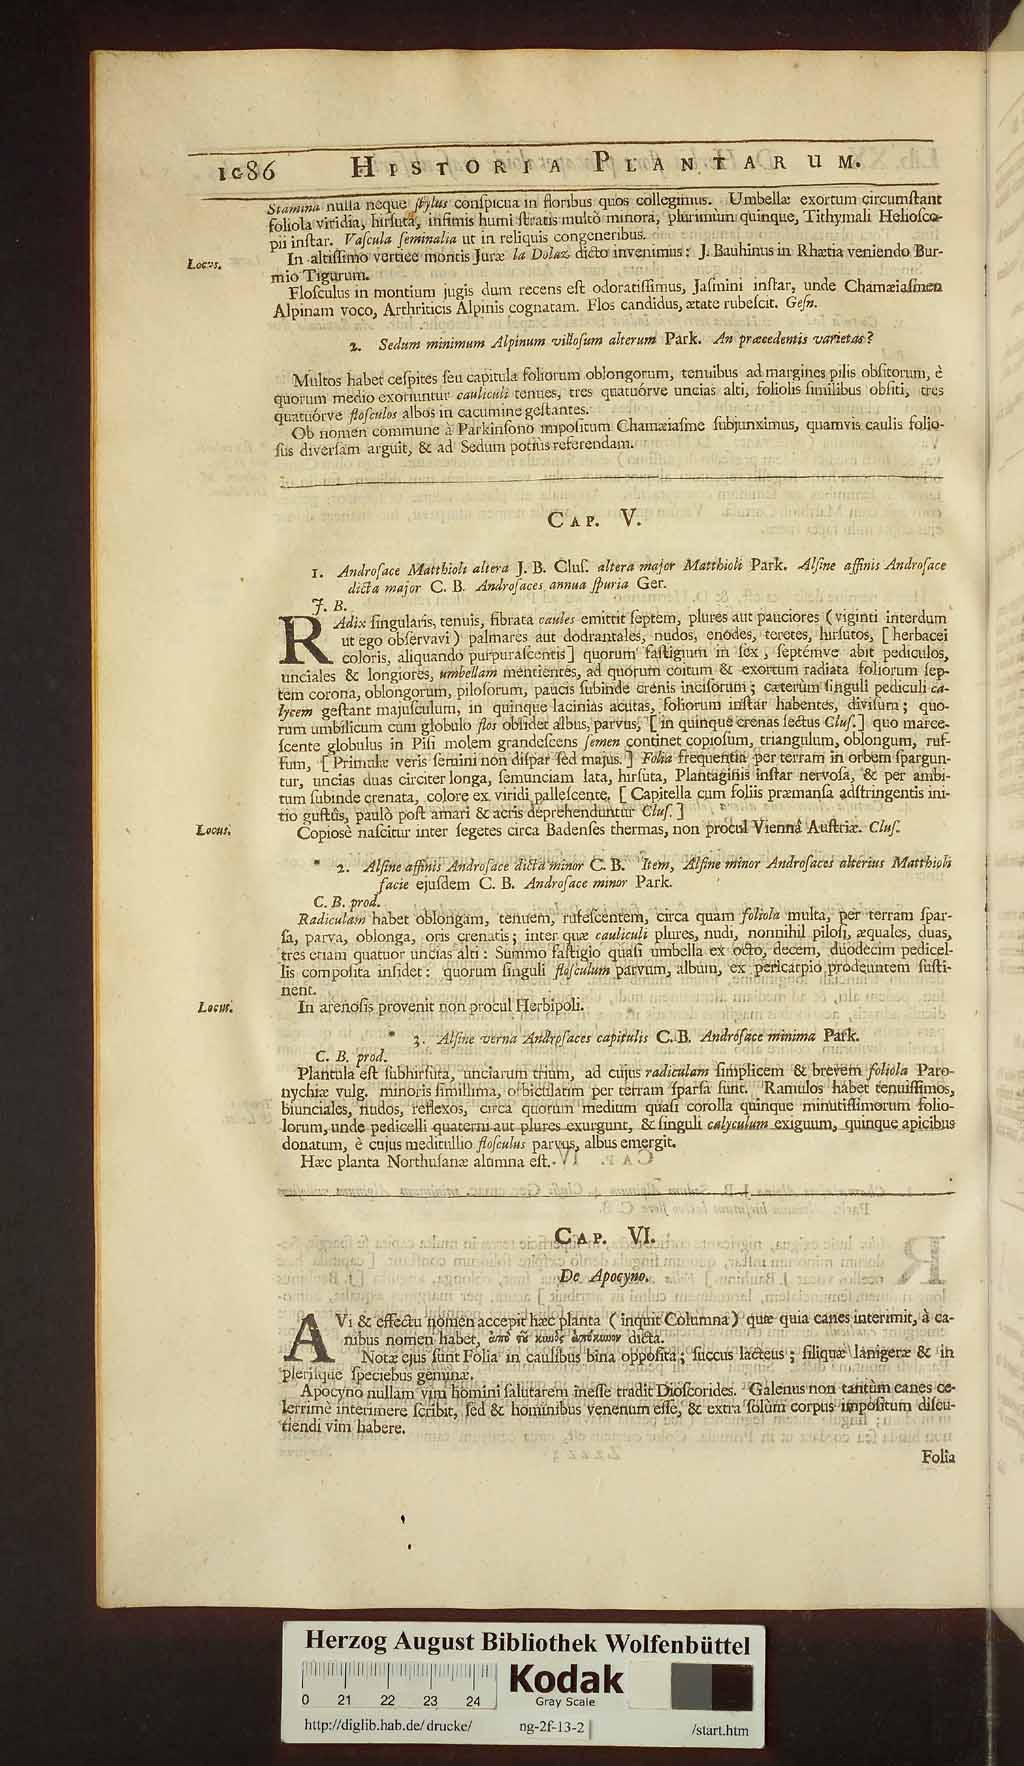 1686 HISTORIA PLANTARUM.
Stamina nulla neque ſtylus conſpicua in floribus quos collegimus. Umbellæ exortum circumſtant
foliola viridia, hirſuta, infimis humi ſtratis multò minora, plurimùm quinque, Tithymali Helioſco-
pii inſtar. Vaſcula ſeminalia ut in reliquis congeneribus.
Locus. In altiſſimo vertice montis Juræ la Dolaz dicto invenimus: J. Bauhinus in Rhætia veniendo Bur-
mio Tigurum.
Floſculus in montium jugis dum recens eſt odoratiſſimus, Jaſmini inſtar, unde Chamæiaſmen
Alpinam voco, Arthriticis Alpinis cognatam. Flos candidus, ætate rubeſcit. Geſn.
2. Sedum minimum Alpinum villoſum alterum Park. An præcedentis varietas?
Multos habet ceſpites ſeu capitula foliorum oblongorum, tenuibus ad margines pilis obſitorum, è
quorum medio exoriuntur cauliculi tenues, tres quatuórve uncias alti, foliolis ſimilibus obſiti, tres
quatuórve floſculos albos in cacumine geſtantes.
Ob nomen commune à Parkinſono impoſitum Chamæiaſme ſubjunximus, quamvis caulis folio-
ſus diverſam arguit, & ad Sedum potiùs referendam.
CAP. V.
1. Androſace Matthioli altera J. B. Cluſ. altera major Matthioli Park. Alſine affinis Androſace
dicta major C. B. Androſaces annua ſpuria Ger.
J. B.
RAdix ſingularis, tenuis, fibrata caules emittit ſeptem, plures aut pauciores (viginti interdum
ut ego obſervavi) palmares aut dodrantales, nudos, enodes, teretes, hirſutos, [herbacei
coloris, aliquando purpuraſcentis] quorum faſtigium in ſex, ſeptémve abit pediculos,
unciales & longiores, umbellam mentientes, ad quorum coitum & exortum radiata foliorum ſep-
tem corona, oblongorum, piloſorum, paucis ſubinde crenis inciſorum; cæterùm ſinguli pediculi ca-
lycem geſtant majuſculum, in quinque lacinias acutas, foliorum inſtar habentes, diviſum; quo-
rum umbilicum cum globulo flos obſidet albus, parvus, [in quinque crenas ſectus Cluſ.] quo marce-
ſcente globulus in Piſi molem grandeſcens ſemen continet copioſum, triangulum, oblongum, ruf-
fum, [Primulæ veris ſemini non diſpar ſed majus.] Folia frequentia per terram in orbem ſpargun-
tur, uncias duas circiter longa, ſemunciam lata, hirſuta, Plantaginis inſtar nervoſa, & per ambi-
tum ſubinde crenata, colore ex viridi palleſcente. [Capitella cum foliis præmanſa adſtringentis ini-
tio guſtûs, paulò poſt amari & acris deprehenduntur Cluſ.]
Locus. Copiosè naſcitur inter ſegetes circa Badenſes thermas, non procul Viennâ Auſtriæ. Cluſ.
* 2. Alſine affinis Androſace dicta minor C. B. Item, Alſine minor Androſaces alterius Matthioli
facie ejuſdem C. B. Androſace minor Park.
C. B. prod.
Radiculam habet oblongam, tenuem, rufeſcentem, circa quam foliola multa, per terram ſpar-
ſa, parva, oblonga, oris crenatis; inter quæ cauliculi plures, nudi, nonnihil piloſi, æquales, duas,
tres etiam quatuor uncias alti: Summo faſtigio quaſi umbella ex octo, decem, duodecim pedicel-
lis compoſita inſidet: quorum ſinguli floſculum parvum, album, ex pericarpio prodeuntem ſuſti-
nent.
Locus. In arenoſis provenit non procul Herbipoli.
* 3. Alſine verna Androſaces capitulis C. B. Androſace minima Park.
C. B. prod.
Plantula eſt ſubhirſuta, unciarum trium, ad cujus radiculam ſimplicem & brevem foliola Paro-
nychiæ vulg. minoris ſimillima, orbiculatim per terram ſparſa ſunt. Ramulos habet tenuiſſimos,
biunciales, nudos, reflexos, circa quorum medium quaſi corolla quinque minutiſſimorum folio-
lorum, unde pedicelli quaterni aut plures exurgunt, & ſinguli calyculum exiguum, quinque apicibus
donatum, è cujus meditullio floſculus parvus, albus emergit.
Hæc planta Northuſanæ alumna eſt.
CAP. VI.
De Apocyno.
AVi & effectu nomen accepit hæc planta (inquit Columna) quæ quia canes interimit, à ca-
nibus nomen habet, ἀπὸ τῶ κυνὸς ἀπόκυνον dicta.
Notæ ejus ſunt Folia in caulibus bina oppoſita; ſuccus lacteus; ſiliquæ lanigeræ & in
pleriſque ſpeciebus geminæ.
Apocyno nullam vim homini ſalutarem ineſſe tradit Dioſcorides. Galenus non tantùm canes ce-
lerrimè interimere ſcribit, ſed & hominibus venenum eſſe, & extra ſolùm corpus impoſitum diſcu-
tiendi vim habere.
Folia
Herzog August Bibliothek Wolfenbüttel
Kodak
Gray Scale
0 21 22 23 24
http://diglib.hab.de/drucke/ ng-2f-13-2 /start.htm